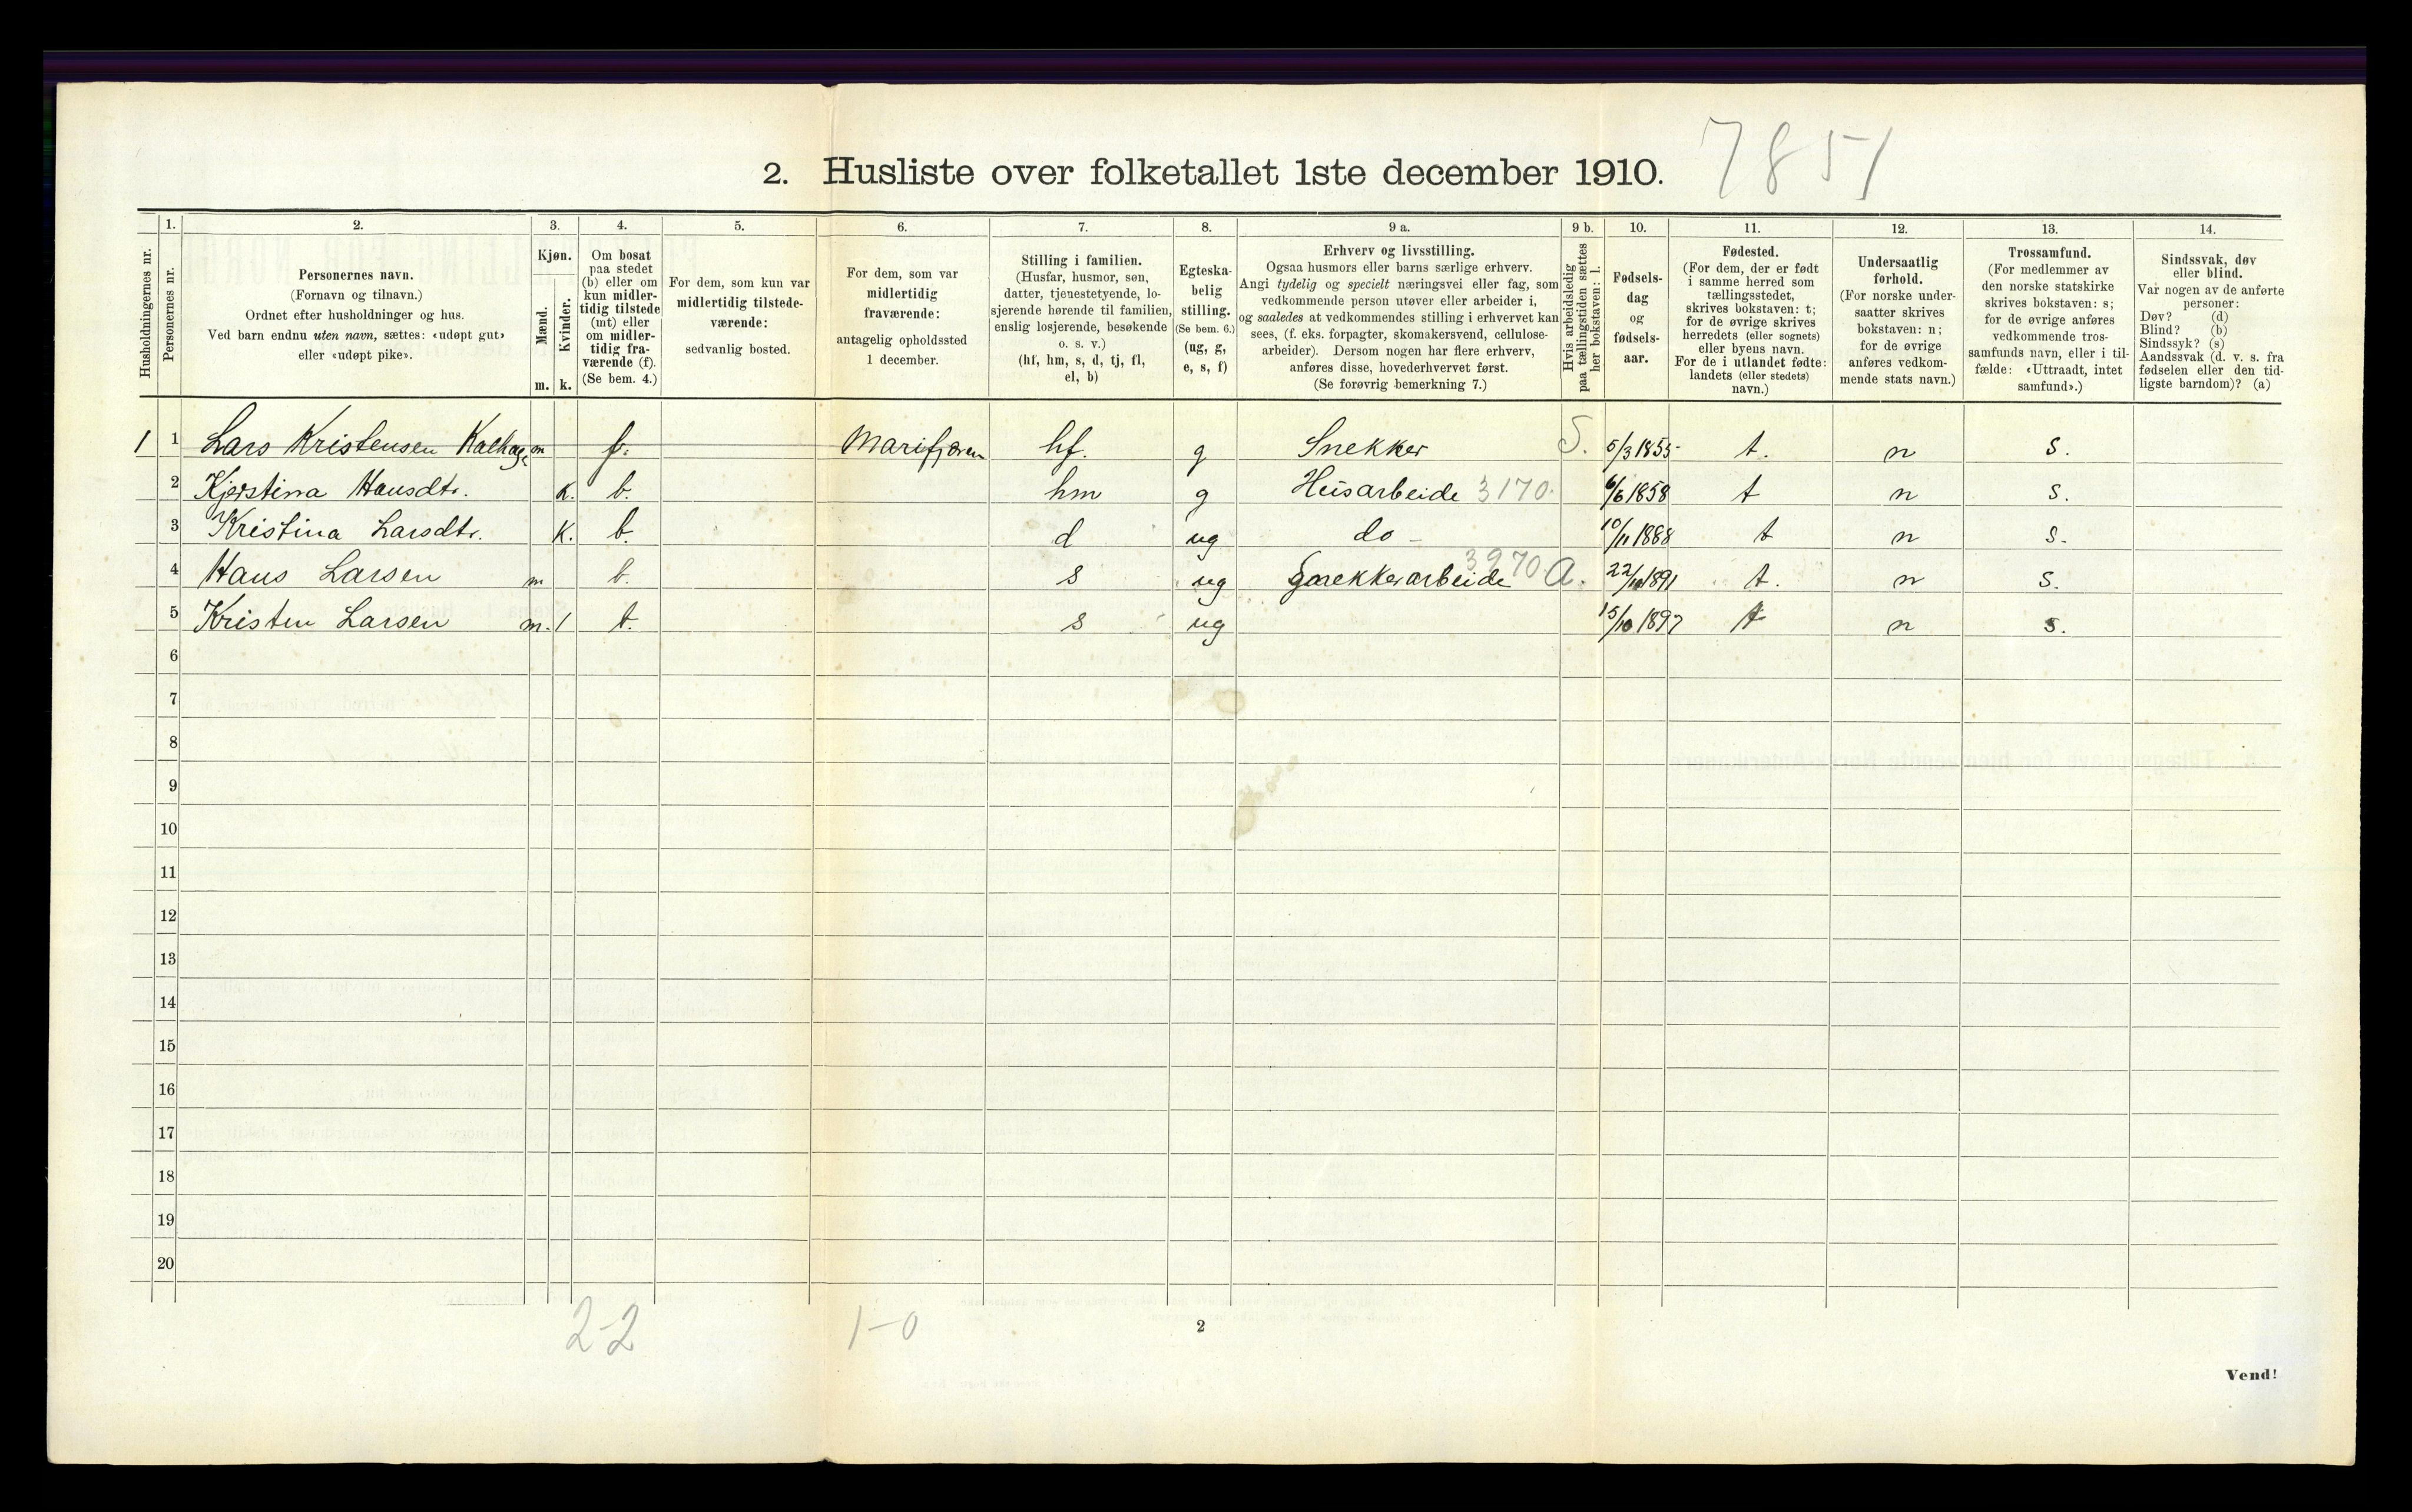 7851
2. Husliste over folketallet 1ste december 1910.
Husholdningernes nr.
1.
Personernes nr.
2.
Personernes navn.
(Fornavn og tilnavn.)
Ordnet efter husholdninger og hus.
Ved barn endnu uten navn, sættes: «udøpt gut»
eller «udøpt pike».
3.
Kjøn.
Mænd.
m.
Kvinder.
k.
4.
Om bosat
paa stedet
(b) eller om
kun midler-
tidig tilstede
(mt) eller
om midler-
tidig fra-
værende (f).
(Se bem. 4.)
5.
For dem, som kun var
midlertidig tilstede-
værende:
sedvanlig bosted.
6.
For dem, som var
midlertidig
fraværende:
antagelig opholdssted
1 december.
7.
Stilling i familien.
(Husfar, husmor, søn,
datter, tjenestetyende, lo-
sjerende hørende til familien,
enslig losjerende, besøkende
o. s. v.)
(hf, hm, s, d, tj, fl,
el, b)
8.
Egteska-
belig
stilling.
(Se bem. 6.)
(ug, g,
e, s, f)
9 a.
Erhverv og livsstilling.
Ogsaa husmors eller barns særlige erhverv.
Angi tydelig og specielt næringsvei eller fag, som
vedkommende person utøver eller arbeider i,
og saaledes at vedkommendes stilling i erhvervet kan
sees, (f. eks. forpagter, skomakersvend, cellulose-
arbeider). Dersom nogen har flere erhverv,
anføres disse, hovederhvervet først.
(Se forøvrig bemerkning 7.)
9 b.
Hvis arbeidsledig
paa tællingstiden sættes
her bokstaven: l.
10.
Fødsels-
dag
og
fødsels-
aar.
11.
Fødested.
(For dem, der er født
i samme herred som
tællingsstedet,
skrives bokstaven: t;
for de øvrige skrives
herredets (eller sognets)
eller byens navn.
For de i utlandet fødte:
landets (eller stedets)
navn.)
12.
Undersaatlig
forhold.
(For norske under-
saatter skrives
bokstaven: n;
for de øvrige
anføres vedkom-
mende stats navn.)
13.
Trossamfund.
(For medlemmer av
den norske statskirke
skrives bokstaven: s;
for de øvrige anføres
vedkommende tros-
samfunds navn, eller i til-
fælde: «Uttraadt, intet
samfund».)
14.
Sindssvak, døv
eller blind.
Var nogen av de anførte
personer:
Døv? (d)
Blind? (b)
Sindssyk? (s)
Aandssvak (d. v. s. fra
fødselen eller den tid-
ligste barndom)? (a)
1 1 Lars Kristensen m f. Marifjæren hf. g Snekker S. 5/3 1855 t. n s.
2 Kjerstina Hansdtr. k. b. hm g Husarbeide 3170. 6/6 1858 t n s.
3 Kristina Larsdtr. k. b. d ug do - 10/11 1888 t n s.
4 Hans Larsen m b. s ug Snekkerarbeide 3270 A. 22/10 1891 t. n s.
5 Kristen Larsen m. 1 b. s ug 15/10 1897 t n s.
6
7
8
9
10
11
12
13
14
15
16
17
18
19
20
2-2 1-0
2
Vend!